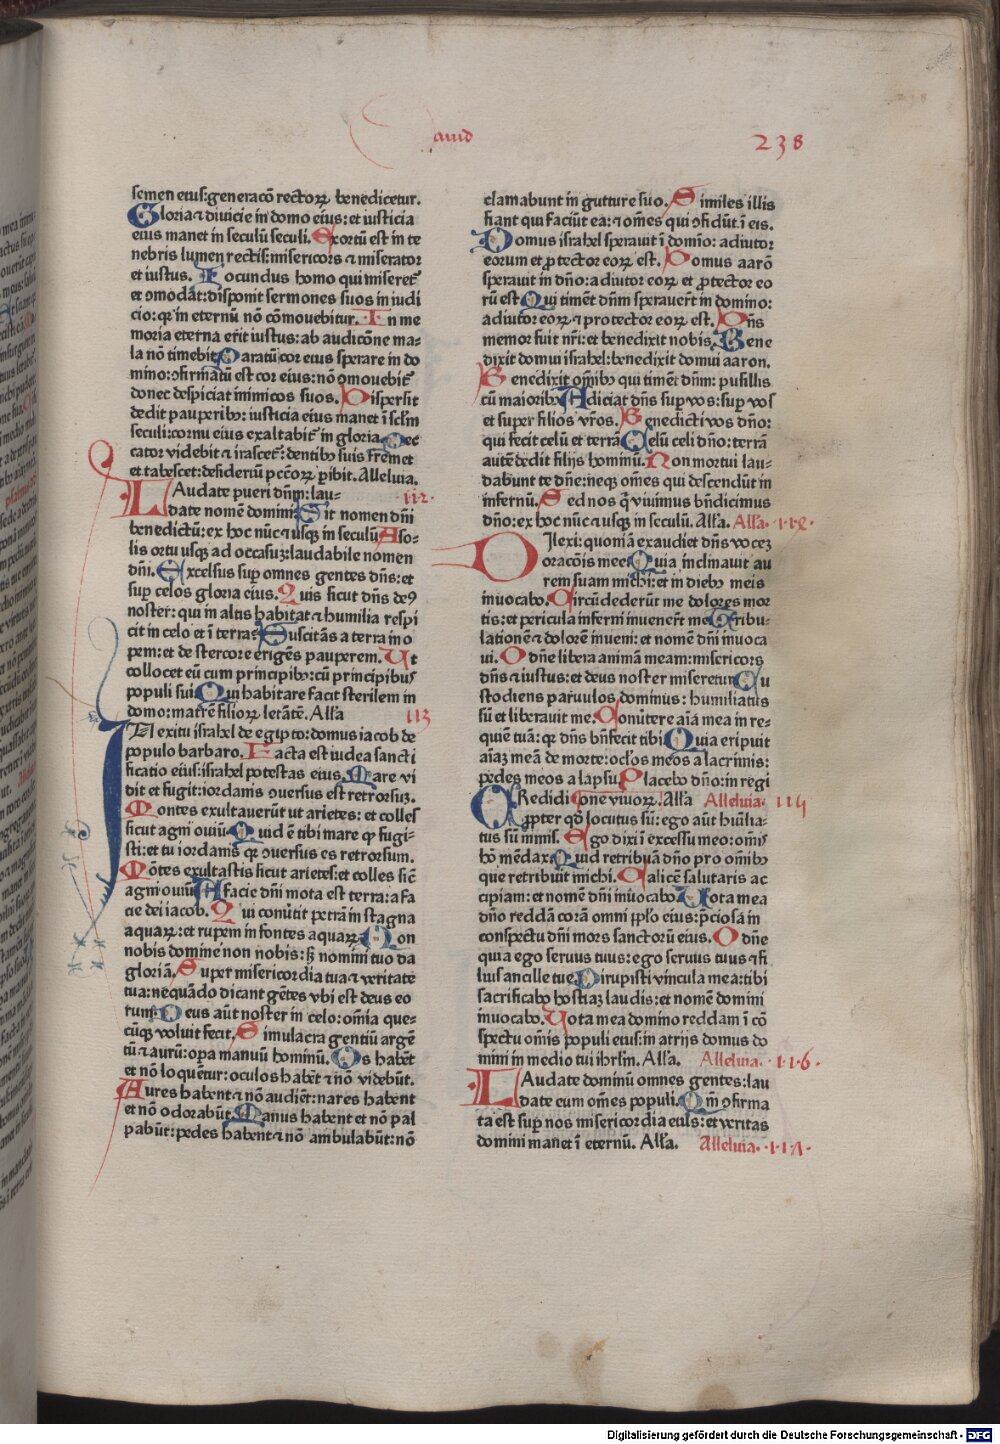 Dauid
238
semen eius: generacõ rectoꝝ benedicetur.
Gloria ⁊ diuicie in domo eius: et iusticia
eius manet in seculũ seculi. Exortũ est in te
nebris lumen rectis: misericors ⁊ miserator
et iustus. Iocundus homo qui miseret᷑
et ꝯmodãt: disponit sermones suos in iudi
cio: qꝛ in eternũ nõ cõmouebitur. In me
moria eterna erit iustus: ab audicõne ma-
la nõ timebit Paratũ cor eius sperare in do
mino: ꝯfirmatũ est cor eius: nõ ꝯmouebit᷑
donec despiciat inimicos suos. Dispersit
dedit pauperibꝰ: iusticia eius manet ĩ sclm̃
seculi: cornu eius exaltabit᷑ in gloria. Pec
cator videbit ⁊ irascet᷑: dentibꝰ suis fremet
et tabescet: desideriũ pc̃cõꝝ ꝑibit. Alleluia.
LAudate pueri dñm: lau- 112.
date nomẽ domini Sit nomen dñi
benedictũ: ex hoc nũc ⁊ usqꝫ in seculũ A so-
lis ortu usqꝫ ad occasuꝫ: laudabile nomen
dñi. Excelsus suꝑ omnes gentes dñs: et
suꝑ celos gloria eius. Quis sicut dñs deꝰ
noster: qui in altis habitat ⁊ humilia respi
cit in celo et ĩ terra? Suscitãs a terra ino
pem: et de stercore erigẽs pauperem. Ut
collocet eũ cum principibꝰ: cũ principibus
populi sui Qui habitare facit sterilem in
domo: matrẽ filioꝝ letãtẽ. All'a 113
IN exitu israhel de egipto: domus iacob de
populo barbaro. Facta est iudea sancti
ficatio eius: israhel potestas eius. Mare vi
dit et fugit: iordanis ꝯuersus est retrorsuꝫ.
Montes exultauerũt ut arietes: et colles
sicut agni ouiũ Quid ẽ tibi mare ꝙ fugi-
sti: et tu iordanis qꝛ ꝯuersus es retrorsum.
Mõtes exultastis sicut arietes: et colles sic̃
agni ouiũ A facie dñi mota est terra: a fa
cie dei iacob. Qui conũtit petrã in stagna
aquaꝝ: et rupem in fontes aquaꝝ Non
nobis domine non nobis: sꝫ nomini tuo da
gloriã. Super misericordia tua ⁊ veritate
tua: nequãdo dicant gẽtes vbi est deus eo
rum? Deus aũt noster in celo: om̃ia que-
cũqꝫ voluit fecit. Simulacra gentiũ argẽ
tũ ⁊ aurũ: oꝑa manuũ hominũ. Os habẽt
et nõ loquẽtur: oculos habẽt ⁊ nõ videbũt.
Aures habent ⁊ nõ audiẽt: nares habent
et nõ odorabũt. Manus habent et nõ pal
pabũt: pedes habent ⁊ nõ ambulabũt: nõ
clamabunt in gutture suo. Similes illis
fiant qui faciũt ea: ⁊ om̃es qui ꝯfidũt ĩ eis.
Domus israhel sperauit ĩ domĩo: adiutor
eorum et ꝓtector eoꝝ est. Domus aarõ
sperauit in dño: adiutor eoꝝ et ꝓtector eo
rũ est Qui timẽt dñm sperauer̃t in domino:
adiutor eoꝝ ⁊ protector eoꝝ est. Dñs
memor fuit nr̃i: et benedixit nobis. Bene
dixit domui israhel: benedixit domui aaron.
Benedixit om̃ibꝰ qui timẽt dñm: pusillis
cũ maioribꝰ Adiciat dñs suꝑ vos: suꝑ vos
et super filios vr̃os. Benedicti vos dño:
qui fecit celũ et terrã Celũ celi dño: terrã
autẽ dedit filijs hominũ. Non mortui lau-
dabunt te dñe: neqꝫ om̃es qui descendũt in
infernũ. Sed nos q̃ viuimus bñdicimus
dño: ex hoc nũc ⁊ usqꝫ in seculũ. All'a. All'a.
DIlexi: quoniã exaudiet dñs vocez
oracõis mee Quia inclinauit au
rem suam michi: et in diebꝰ meis
inuocabo. Circũdederũt me dolores mor
tis: et pericula inferni inuener̃t me Tribu-
lationẽ ⁊ dolorẽ inueni: et nomẽ dñi inuoca
ui. O dñe libera animã meam: misericors
dñs ⁊ iustus: et deus noster miseretur Cu
stodiens paruulos dominus: humiliatus
sũ et liberauit me. Conũtere aĩa mea in re-
quiẽ tuã: qꝛ dñs bñfecit tibi Quia eripuit
aĩaꝫ meã de morte: oclõs meos a lacrimis:
pedes meos a lapsu. Placebo dño: in regi
CRedidi one viuoꝝ. All'a Alleluia.
ꝓpter qđ locutus sũ: ego aũt hũilia-
tus sũ nimis. Ego dixi ĩ excessu meo: om̃is
hõ mẽdax Quid retribuã dño pro om̃ibꝰ
que retribuit michi. Calicẽ salutaris ac
cipiam: et nomẽ dñi inuocabo Uota mea
dño reddã corã omni pplõ eius: p̃ciosa in
conspectu dñi mors sanctorũ eius. O dñe
quia ego seruus tuus: ego seruus tuus ⁊ fi
lius ancille tue Dirupisti vincula mea: tibi
sacrificabo hostiaꝫ laudis: et nomẽ domini
inuocabo. Uota mea domino reddam ĩ cõ
spectu om̃is populi eius: in atrijs domus do
mini in medio tui ihrlm̃. All'a. Alleluia. 116.
LAudate dominũ omnes gentes: lau
date eum om̃es populi. Qm̃ ꝯfirma
ta est suꝑ nos misericordia eius: et veritas
domini manet ĩ eternũ. All'a. Alleluia.
Digitalisierung gefördert durch die Deutsche Forschungsgemeinschaft - DFG